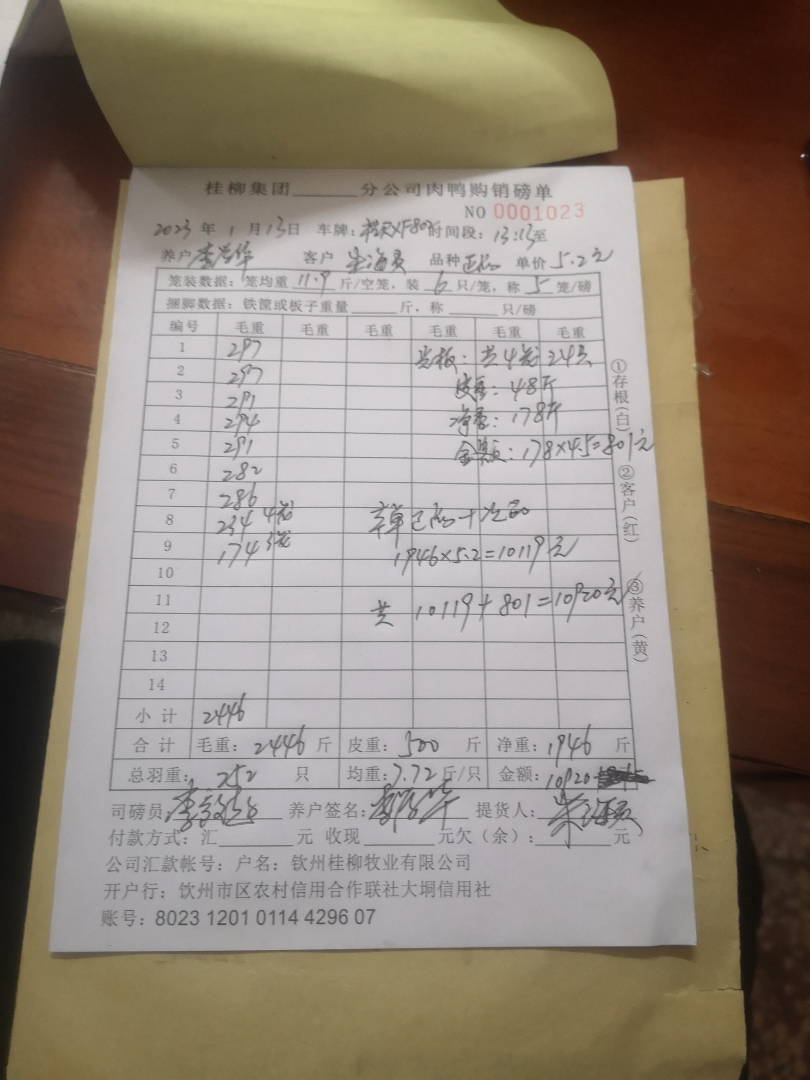 桂柳集团______分公司肉鸭购销磅单
NO 0001023
2023 年 1 月 13日 车牌: 时间段: 13:13至
养户 客户 品种 正品 单价 5.2元
笼装数据: 笼均重 11.9 斤/空笼, 装 6 只/笼, 称 5 笼/磅
捆脚数据: 铁筐或板子重量______斤, 称______只/磅
编号 毛重 毛重 毛重 毛重 毛重 毛重
1 297 共4笼 24只
2 297 皮重: 48斤
3 291 净重: 178斤
4 294 金额: 178×4.5=801元
5 291
6 282
7 286
8 234 4笼 正品+次品
9 174 3笼 1946×5.2=10119元
10
11 共 10119+801=10920元
12
13
14
小计 2446
合计 毛重: 2446 斤 皮重: 500 斤 净重: 1946 斤
总羽重: 252 只 均重: 7.72 斤/只 金额: 10920
司磅员: 养户签名: 提货人:
付款方式: 汇______元 收现______元欠(余):______元
公司汇款帐号: 户名: 钦州桂柳牧业有限公司
开户行: 钦州市区农村信用合作联社大垌信用社
账号: 8023 1201 0114 4296 07
①存根(白)
②客户(红)
③养户(黄)